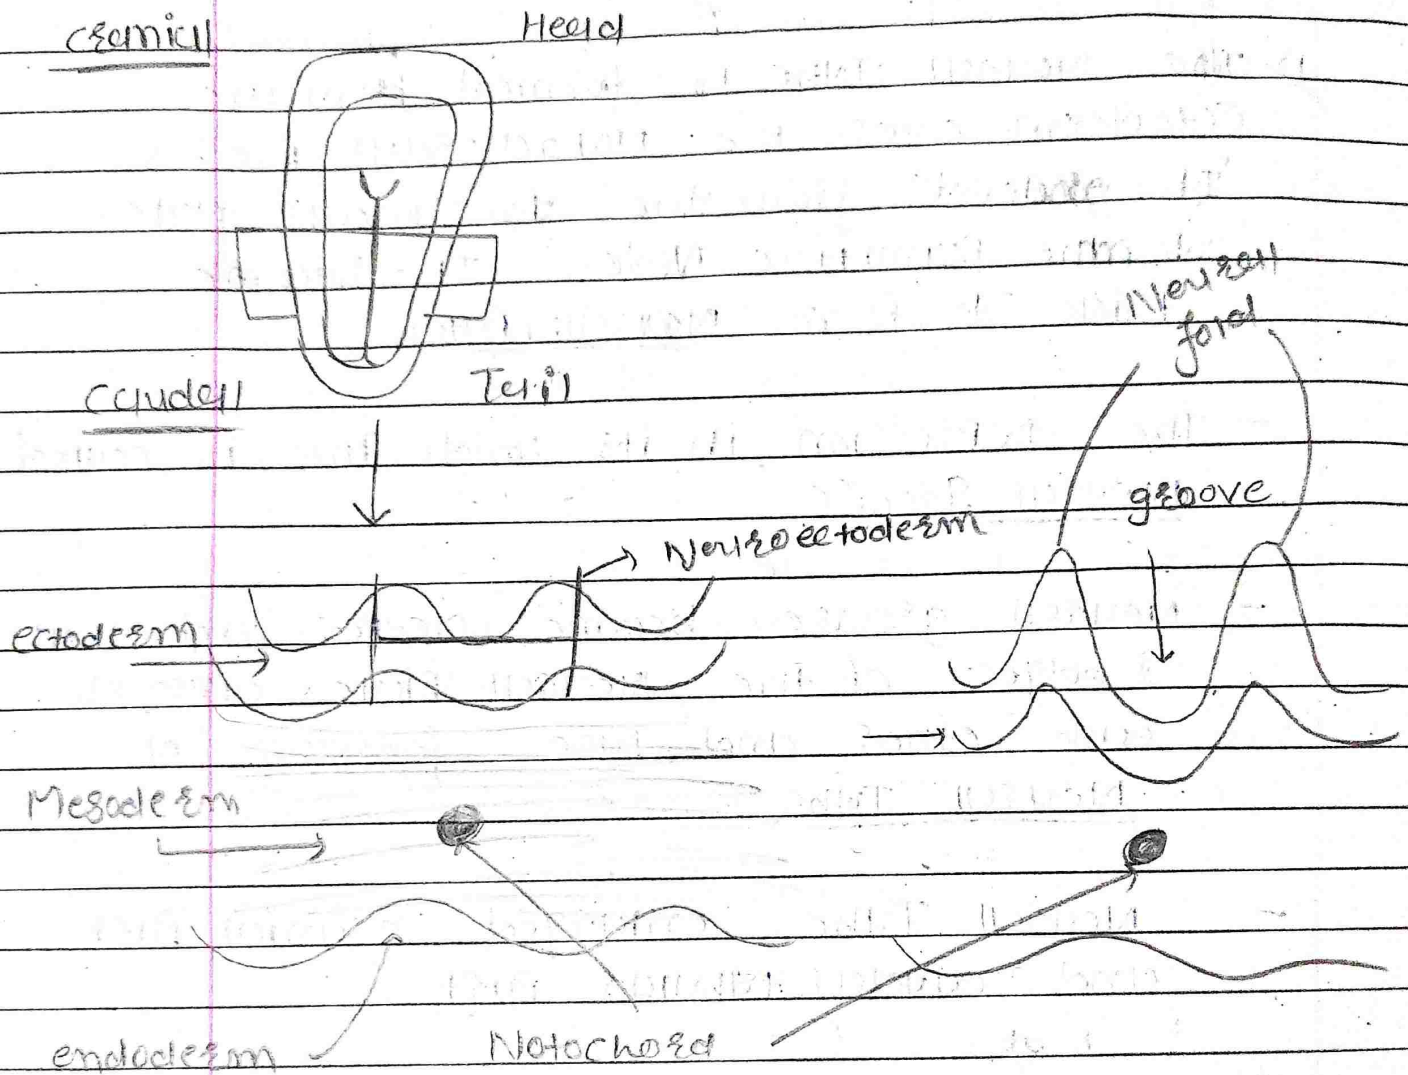 cranial
Head
Caudal
Tail
Neural
fold
groove
Neuroectoderm
ectoderm
Mesoderm
endoderm
Notochord